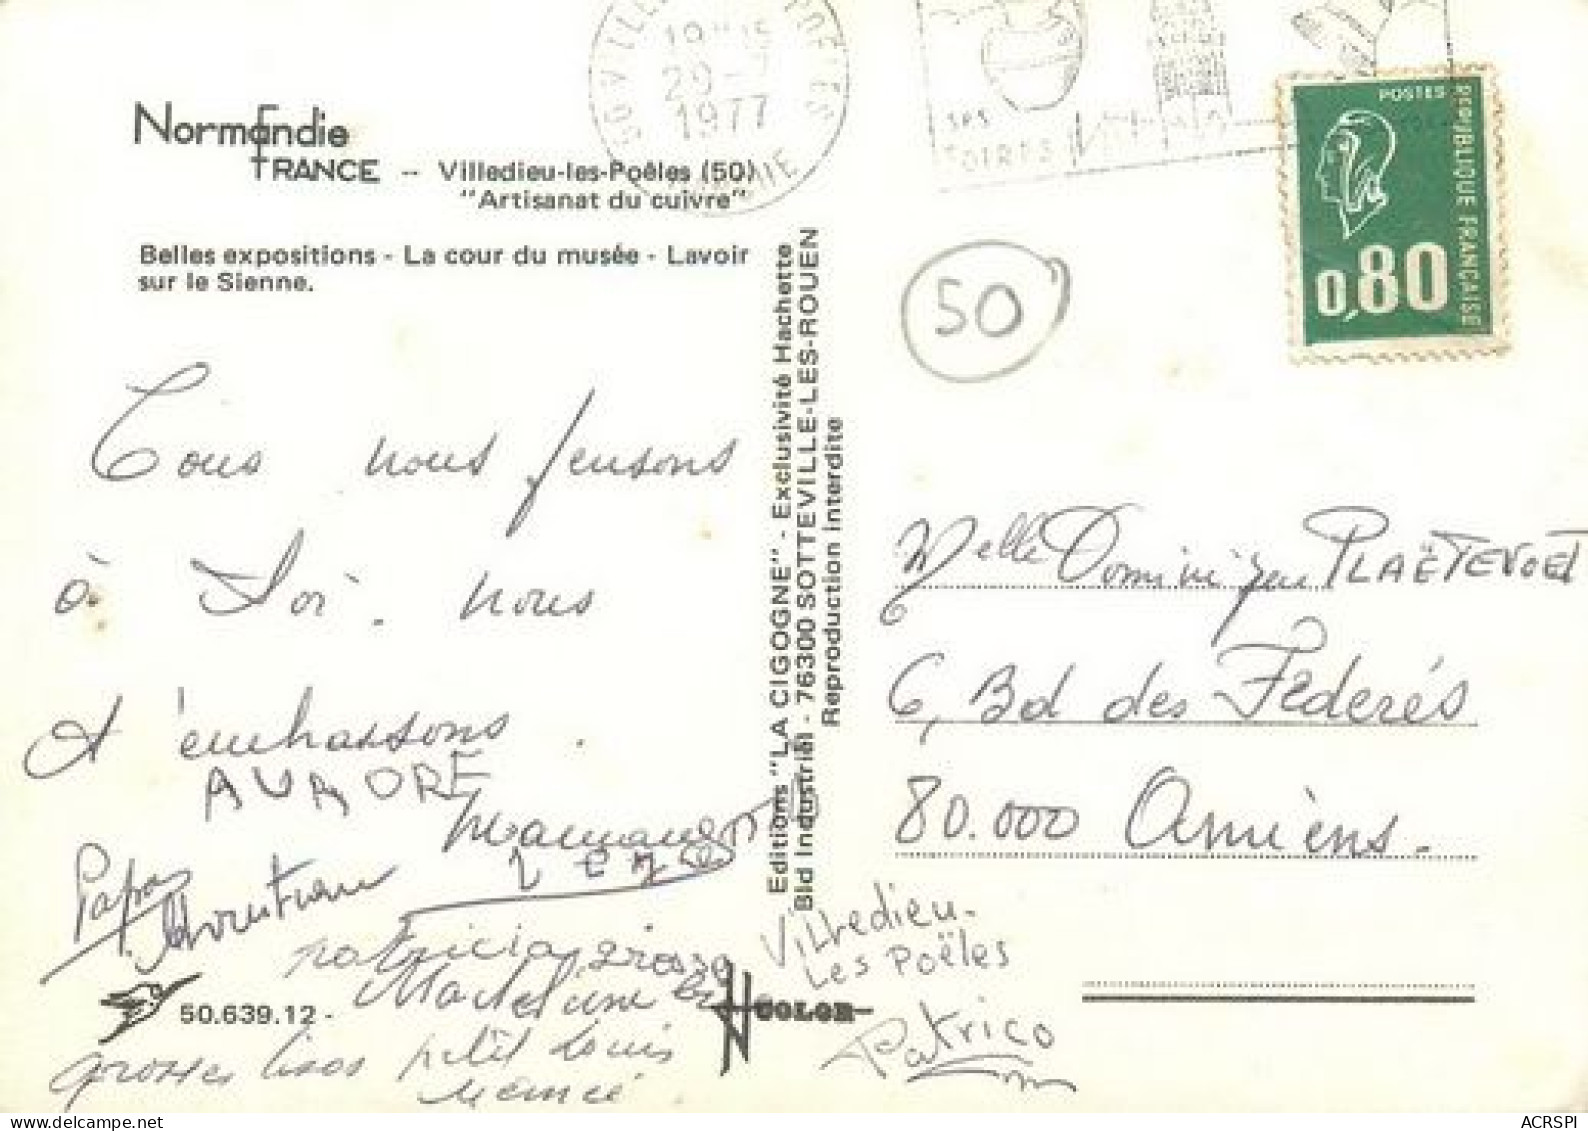 50 VILLEDIEU LES POELES
18H15
29-7
1977
SES
FOIRES
POSTES
REPUBLIQUE FRANÇAISE
0,80
Normandie
FRANCE -- Villedieu-les-Poêles (50)
"Artisanat du cuivre"
Belles expositions - La cour du musée - Lavoir
sur le Sienne.
50
Tous nous pensons
à Toi. nous
t'embrassons.
AURORE
Maman
Papa
Christian
patricia
Madeleine
grosses bises petit Louis
Patrico
Villedieu-
Les Poëles
50.639.12 -
COLOR
Editions "LA CIGOGNE" - Exclusivité Hachette
Bld Industriel - 76300 SOTTEVILLE-LES-ROUEN
Reproduction interdite
Melle Dominique PLAËTEVOET
6, Bd des Fédérés
80.000 Amiens.
ACRSPI